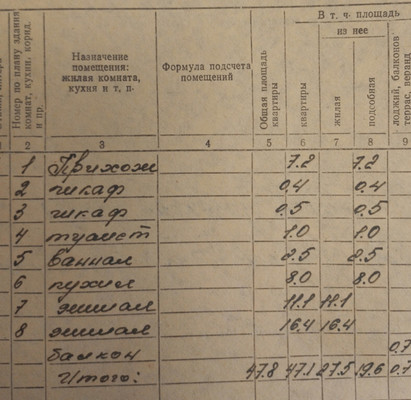 В т. ч. площадь
из нее
Номер по плану здания
комнат, кухни, корид.
и пр.
Назначение
помещения:
жилая комната,
кухня и т, п.
Формула подсчета
помещений
Общая площадь
квартиры
квартиры
жилая
подсобная
лоджий, балконов
террас, веранд
2 3 4 5 6 7 8 9
1 Прихож 7.2 7.2
2 шкаф 0.4 0.4
3 шкаф 0.5 0.5
4 туалет 1.0 1.0
5 ванная 2.5 2.5
6 кухня 8.0 8.0
7 жилая 11.1 11.1
8 жилая 16.4 16.4
балкон 0.7
Итого: 47.8 47.1 27.5 19.6 0.7